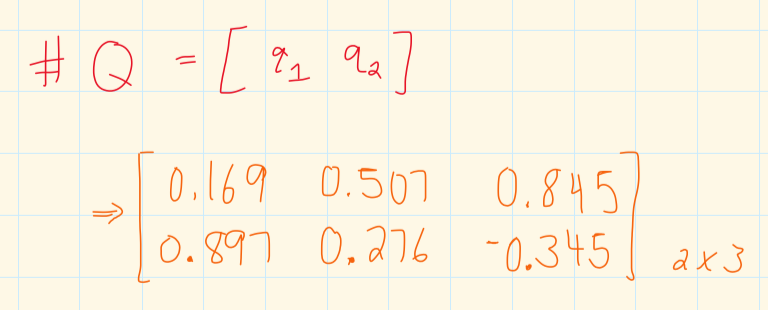 # Q = [ q₁ q₂ ]
⇒ [ 0.169 0.507 0.845
0.897 0.276 -0.345 ] 2x3